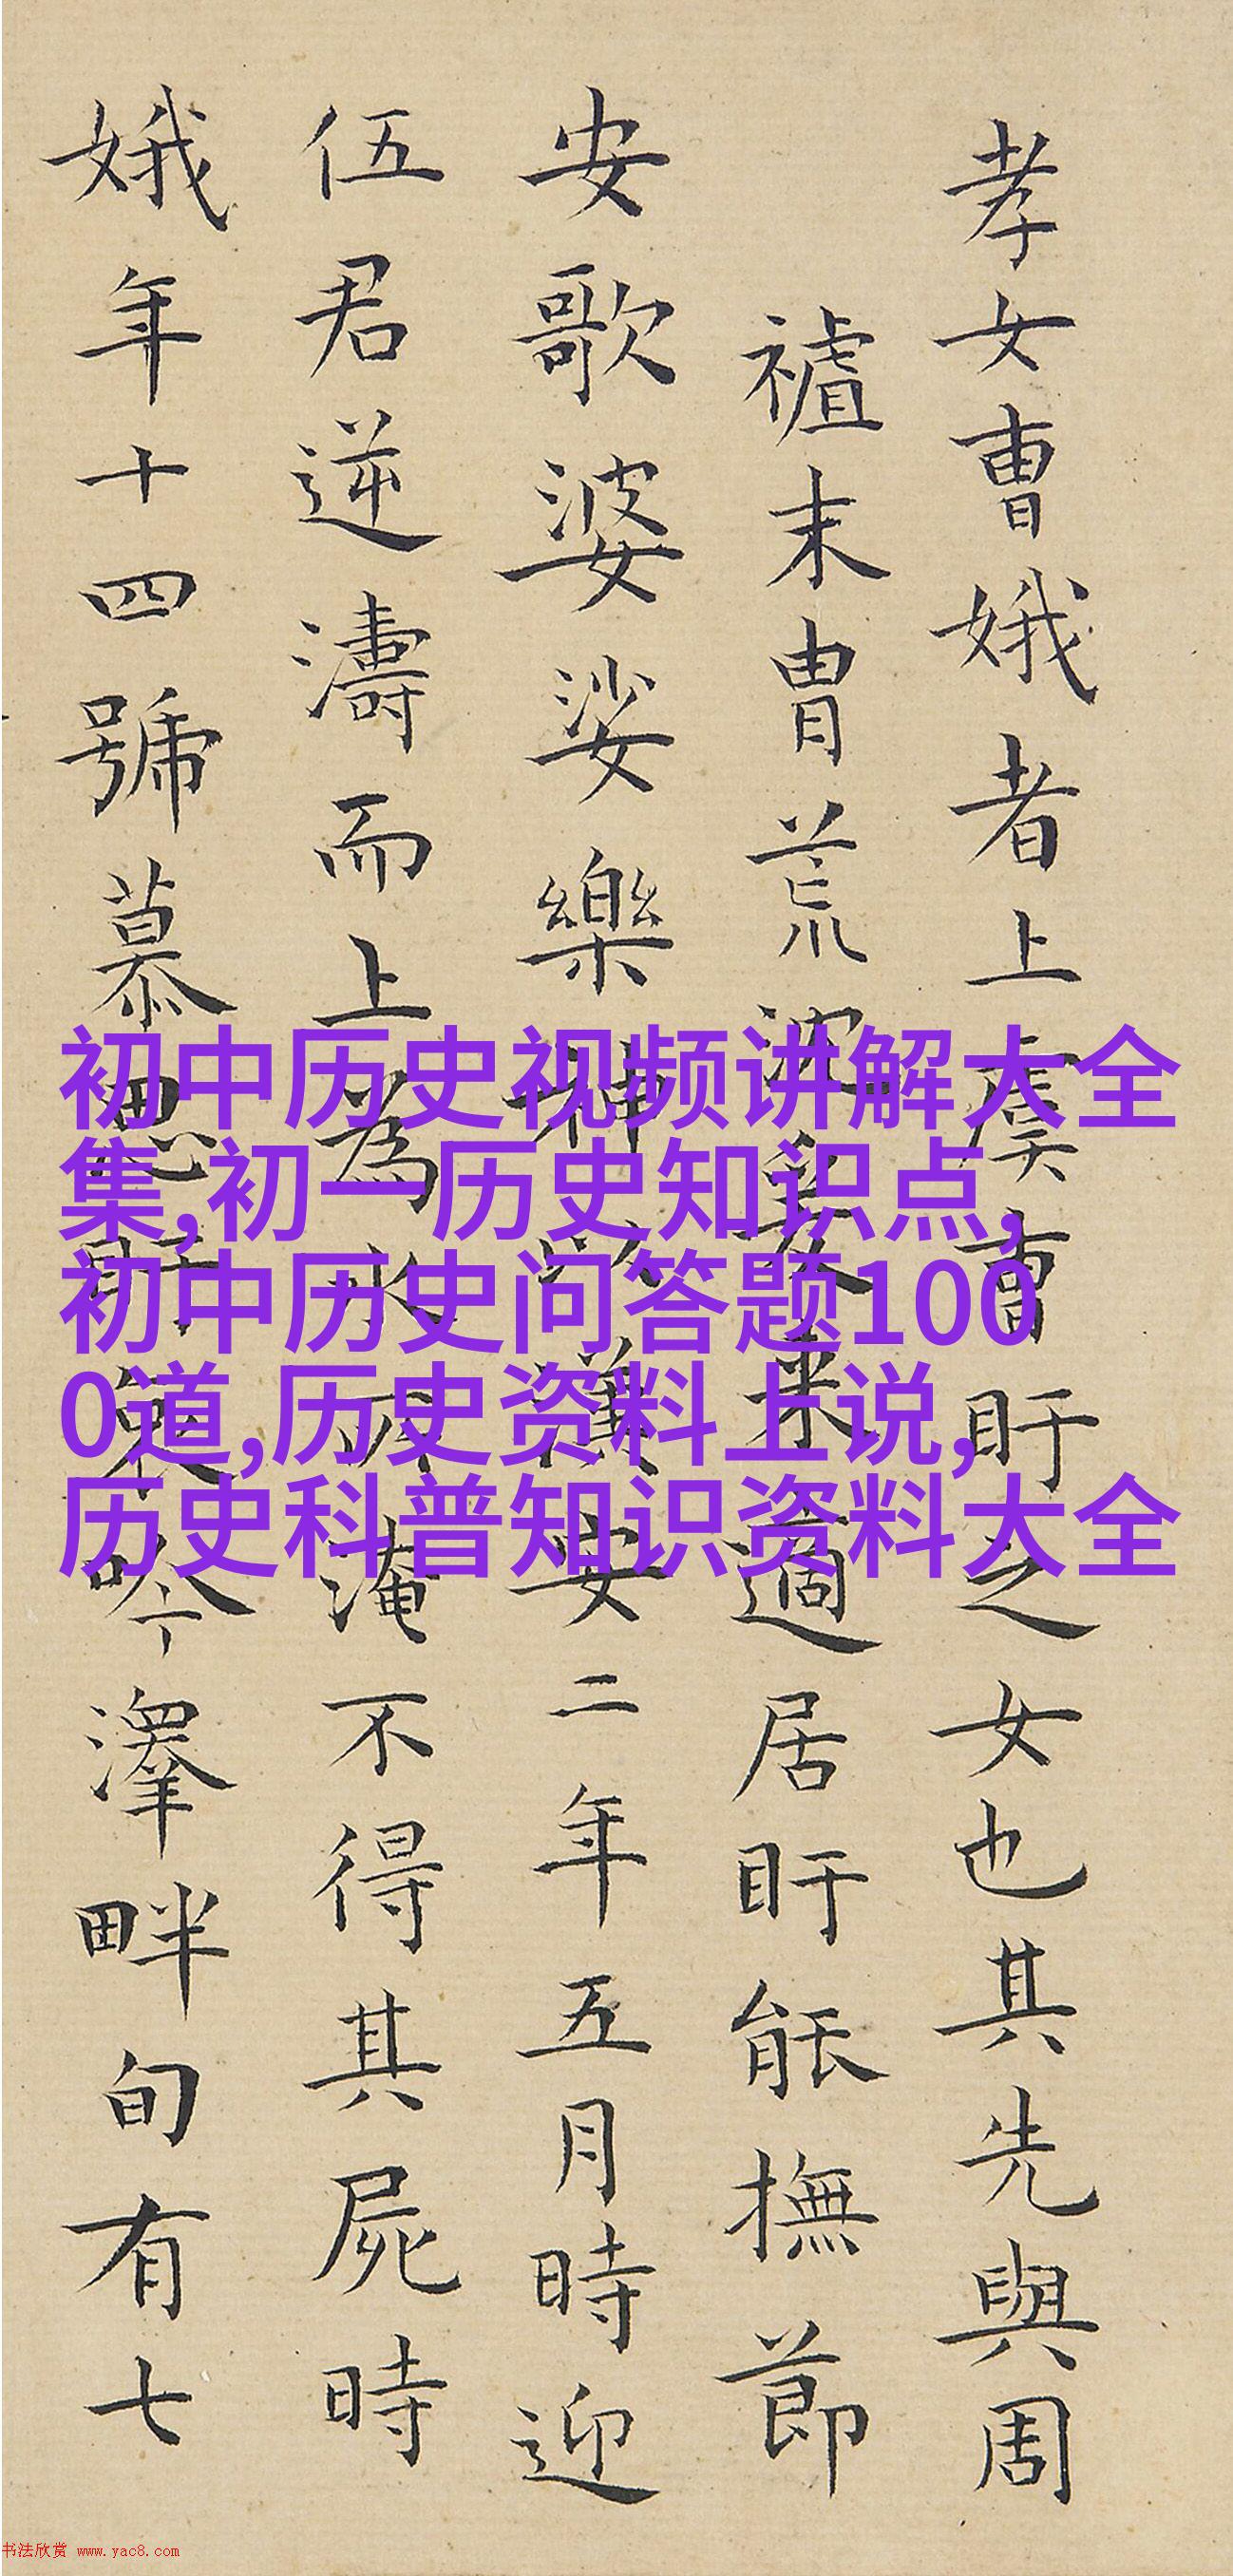 孝女曹娥者上虞曹盱之女也其先與周
末胄荒爰来適居盱能撫節
安歌婆娑樂神以漢安二年五月時迎
伍君逆濤而上為水所淹不得其屍時
娥年十四號慕思盱哀吟澤畔旬有七
初中历史视频讲解大全
集,初一历史知识点,
初中历史问答题100
0道,历史资料上说,
历史科普知识资料大全
书法欣赏 www.yac8.com